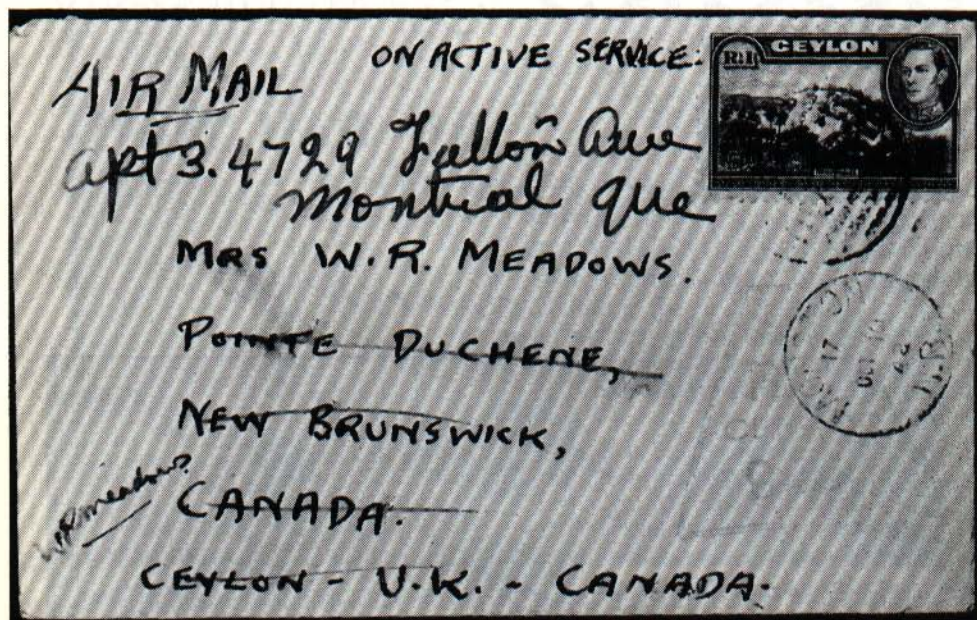 AIR MAIL ON ACTIVE SERVICE.
CEYLON
R.1
apt 3. 4729 Fullon Ave
Montreal Que
MRS W.R. MEADOWS.
POINTE DUCHENE,
NEW BRUNSWICK,
CANADA.
W.R. Meadows.
CEYLON - U.K. - CANADA.
MONCTON
17
N.B.